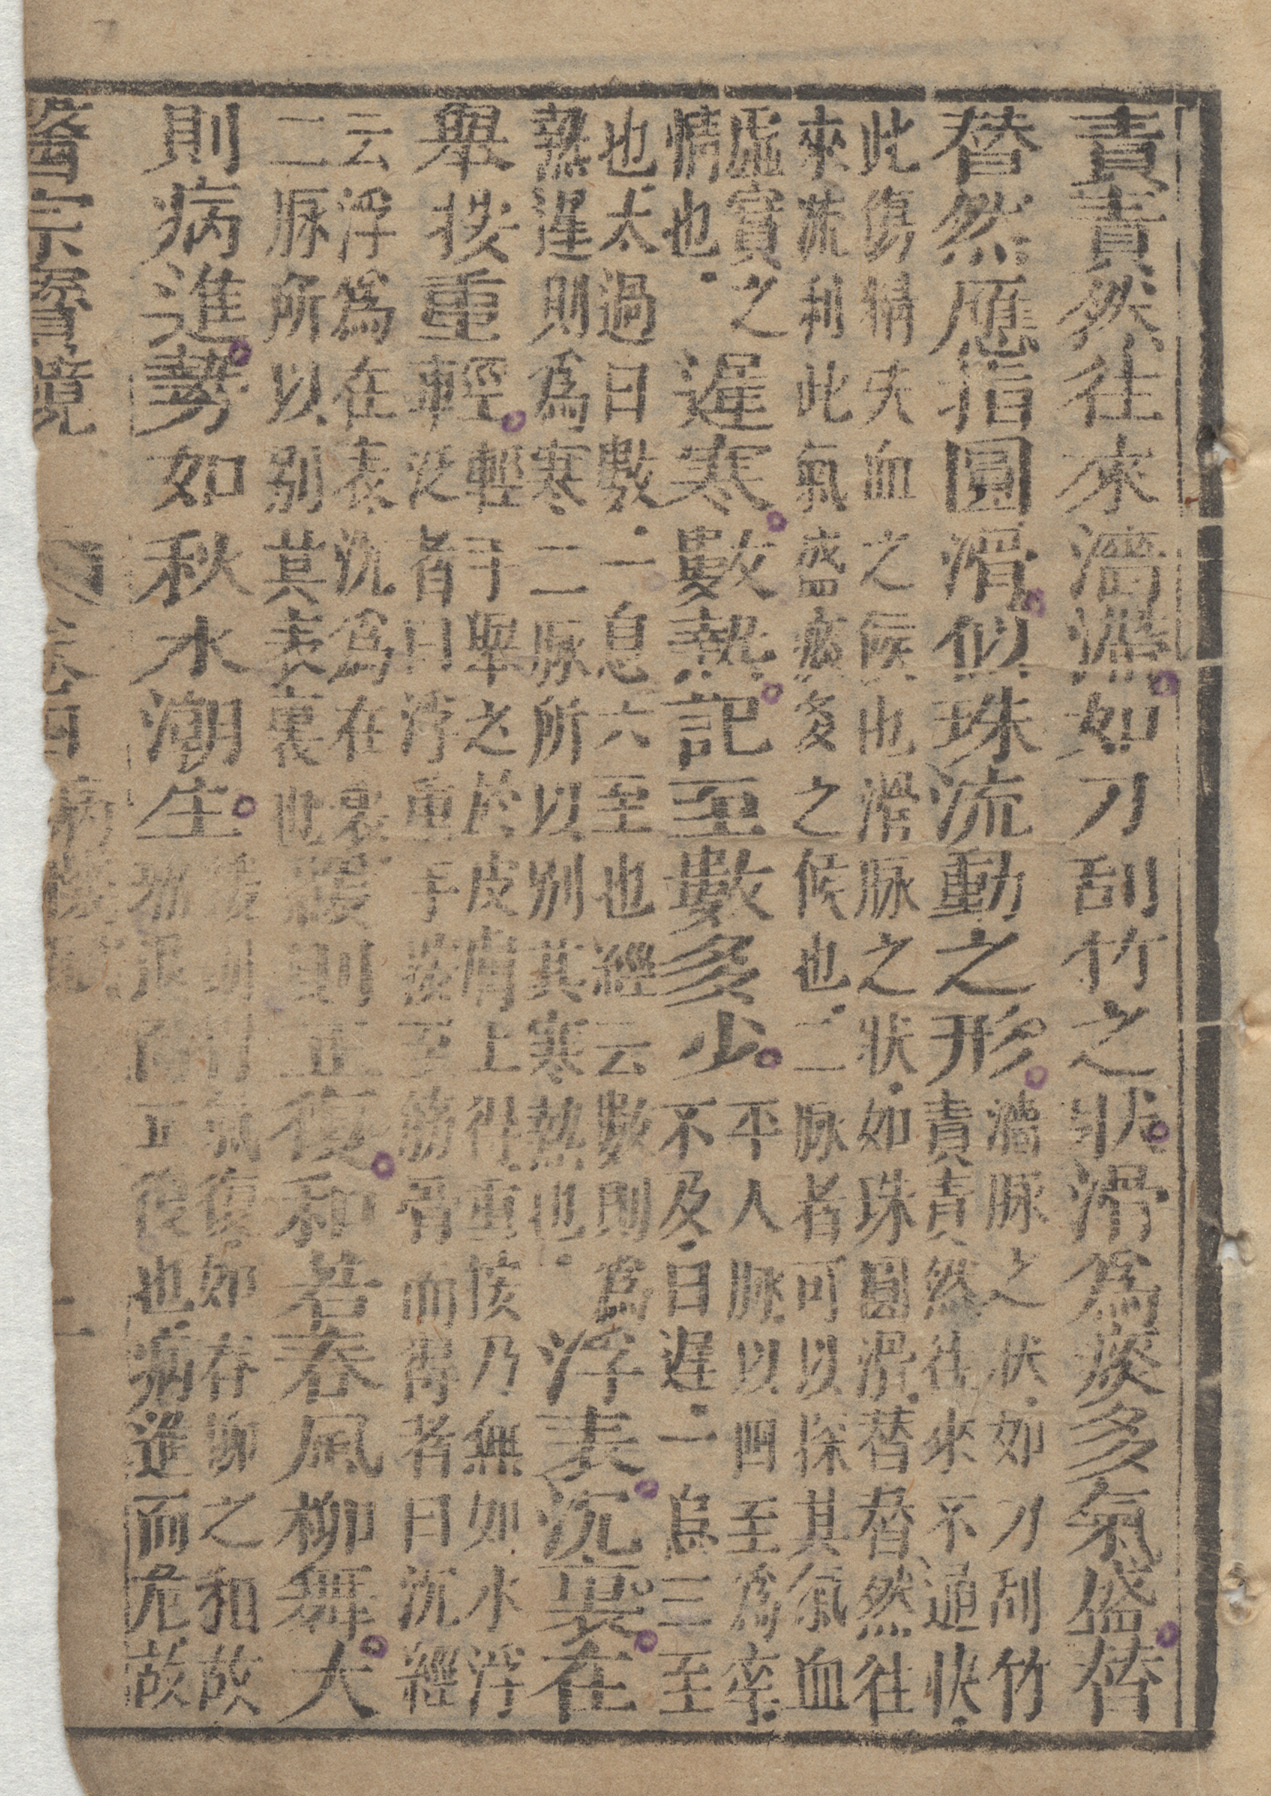 責責然往來濇濇如刀刮竹之狀滑為痰多氣盛替
替然應指圓滑似珠流動之形濇脉之狀如刀刮竹
責責然往來不通快
此傷精失血之候也滑脉之狀如珠圓滑替替然往
來流利此氣盛痰多之候也二脉者可以探其氣血
虛實之
情也
遲寒數熱記至數多少平人脉以四至為率
不及曰遲一息三至
也太過曰數一息六至也經云數則為
熱遲則為寒二脉所以別其寒熱也
浮表沉裏在
舉按重輕輕手舉之於皮膚上得重按乃無如水浮
泛者曰浮重手按至筋骨而得者曰沉經
云浮為在表沉為在裏
二脉所以別其表裏也
緩則正復和若春風柳舞大
則病進勢如秋水潮生緩則胃氣復如春柳之和故
邪退而正復也病進而危故
醫宗寶鏡 卷四 二